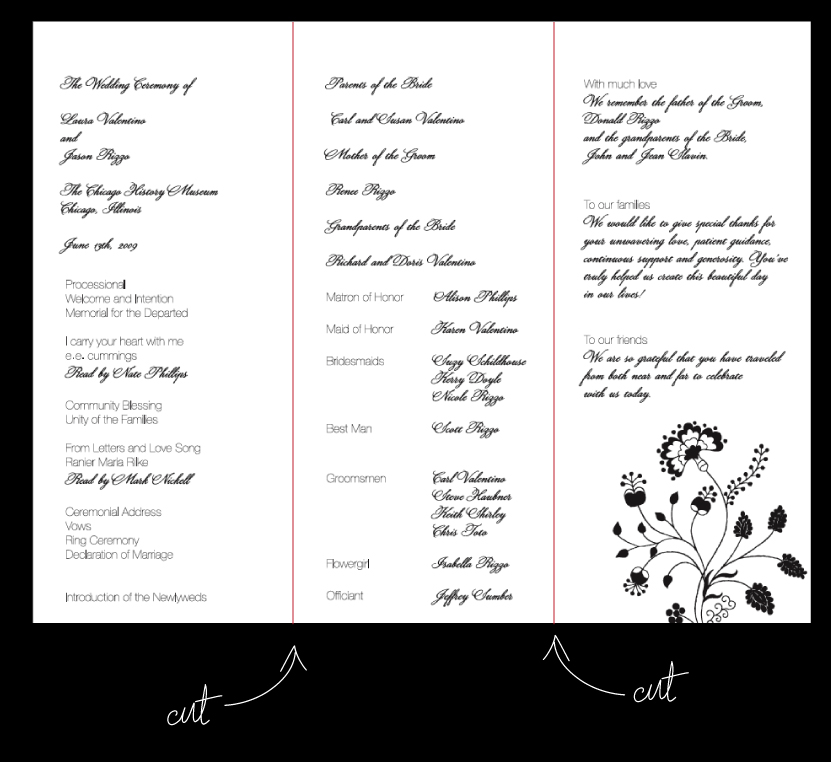 The Wedding Ceremony of
Laura Valentino
and
Jason Rizzo
The Chicago History Museum
Chicago, Illinois
June 13th, 2009
Processional
Welcome and Intention
Memorial for the Departed
I carry your heart with me
e.e. cummings
Read by Nate Phillips
Community Blessing
Unity of the Families
From Letters and Love Song
Ranier Maria Rilke
Read by Mark Nickell
Ceremonial Address
Vows
Ring Ceremony
Declaration of Marriage
Introduction of the Newlyweds
Parents of the Bride
Carl and Susan Valentino
Mother of the Groom
Renee Rizzo
Grandparents of the Bride
Richard and Doris Valentino
Matron of Honor Alison Phillips
Maid of Honor Karen Valentino
Bridesmaids Suzy Schildhouse
Kerry Doyle
Nicole Rizzo
Best Man Scott Rizzo
Groomsmen Carl Valentino
Steve Haubner
Keith Shirley
Chris Toto
Flowergirl Isabella Rizzo
Officiant Jeffrey Sumber
With much love
We remember the father of the Groom,
Donald Rizzo
and the grandparents of the Bride,
John and Jean Slavin.
To our families
We would like to give special thanks for
your unwavering love, patient guidance,
continuous support and generosity. You've
truly helped us create this beautiful day
in our lives!
To our friends
We are so grateful that you have traveled
from both near and far to celebrate
with us today.
cut
cut